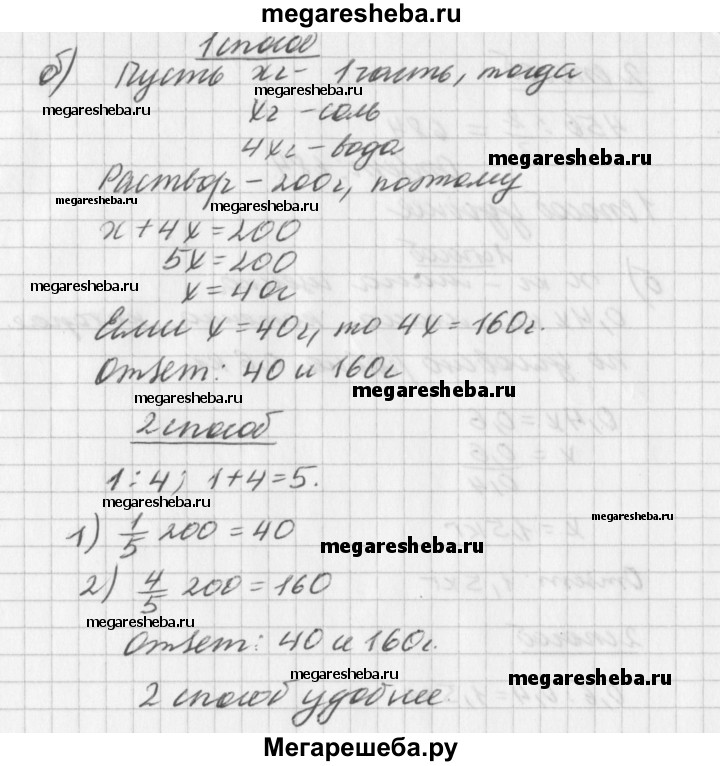 megaresheba.ru
1 способ
б) Пусть xг - 1 часть, тогда
megaresheba.ru
megaresheba.ru
xг - соль
4xг - вода
megaresheba.ru
Раствор - 200г, поэтому
megaresheba.ru
megaresheba.ru
x + 4x = 200
5x = 200
megaresheba.ru
megaresheba.ru
x = 40г
Если x = 40г, то 4x = 160г.
Ответ: 40 и 160г
megaresheba.ru
megaresheba.ru
2 способ
1 : 4; 1 + 4 = 5.
megaresheba.ru
megaresheba.ru
1) 1/5 200 = 40
megaresheba.ru
2) 4/5 200 = 160
megaresheba.ru
megaresheba.ru
Ответ: 40 и 160г.
megaresheba.ru
megaresheba.ru
2 способ удобнее.
Мегарешеба.ру